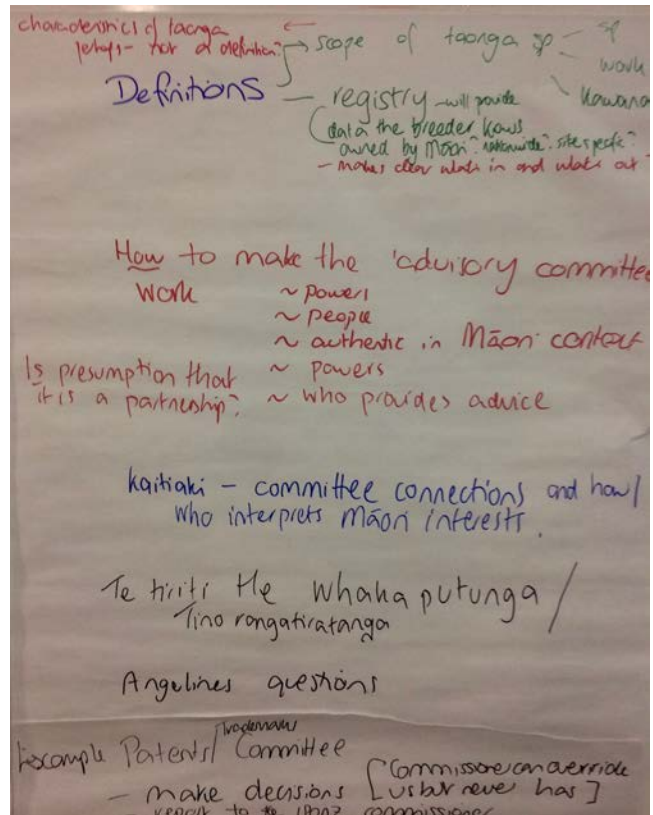 characteristics of taonga
perhaps - not a definition?
scope of taonga sp
sp
work
Definitions
registry - will provide
data the breeder knows
owned by Māori? nationwide? site specific?
- makes clear whats in and whats out
How to make the 'advisory committee
work
~ powers
~ people
~ authentic in Māori context
Is presumption that
it is a partnership?
~ powers
~ who provides advice
kaitiaki - committee connections and how/
who interprets Māori interests.
Te tiriti He whakaputunga /
Tino rangatiratanga
Angelines questions
Example Patents/ Trademarks Committee
- make decisions [Commissioner can override
us but never has]